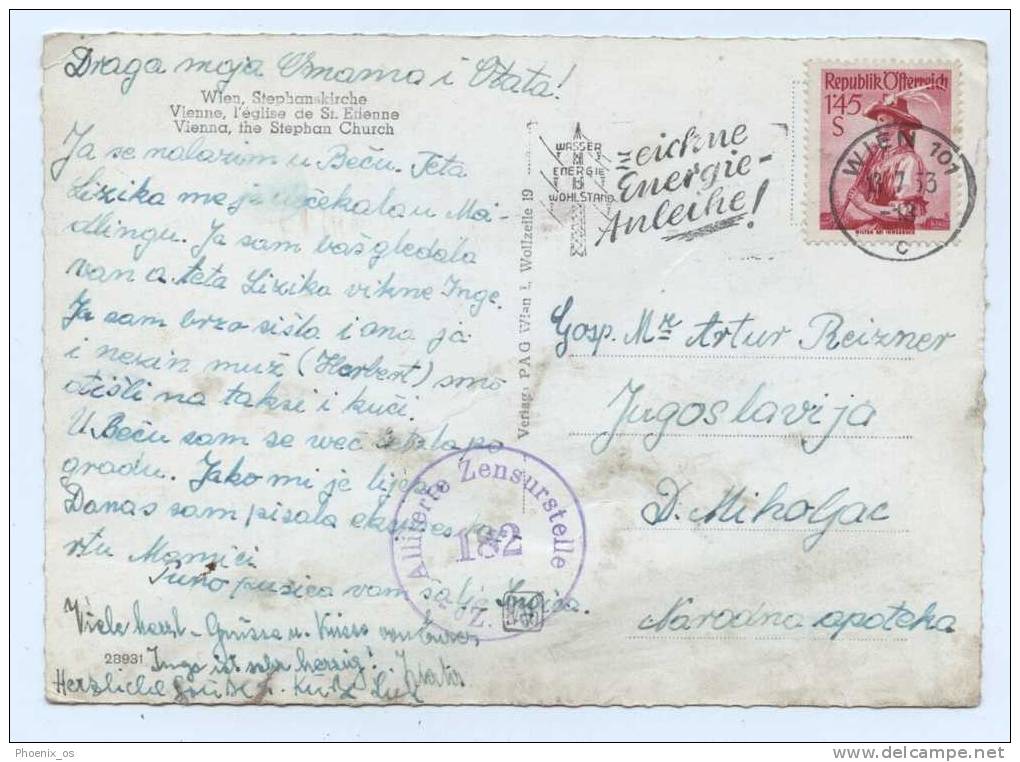 Draga moja Omama i Otata!
Wien, Stephanskirche
Vienne, l'église de St. Etienne
Vienna, the Stephan Church
Ja se nalazim u Beču. Teta
Lizika me je dočekala u Mö-
dlingu. Ja sam baš gledala
van a teta Lizika vikne Inge.
Ja sam brzo sišla i ona ja
i nezin muž (Herbert) smo
otišli na taksi i kući.
U Beču sam se več šetala po
gradu. Jako mi je lijepo
Danas sam pisala ekspres ka-
rtu Mamici
Puno pusica vam šalje Ingica.
Viele herzl. Grüsse u. Küsse von Eurer
Inge ist sehr herzig!
Herzliche Grüße u. Küße
28931
Verlag: PAG Wien I, Wollzeile 19
WASSER
ENERGIE
WOHLSTAND
Zeichne
Energie-
Anleihe!
Republik Österreich
1'45
S
WIEN 101
7 53
C
Gosp. Mr. Artur Reizner
Jugoslavija
D. Miholjac
Narodna apoteka
Alliierte Zensurstelle
182
Z.
Phoenix_os
www.delcampe.net